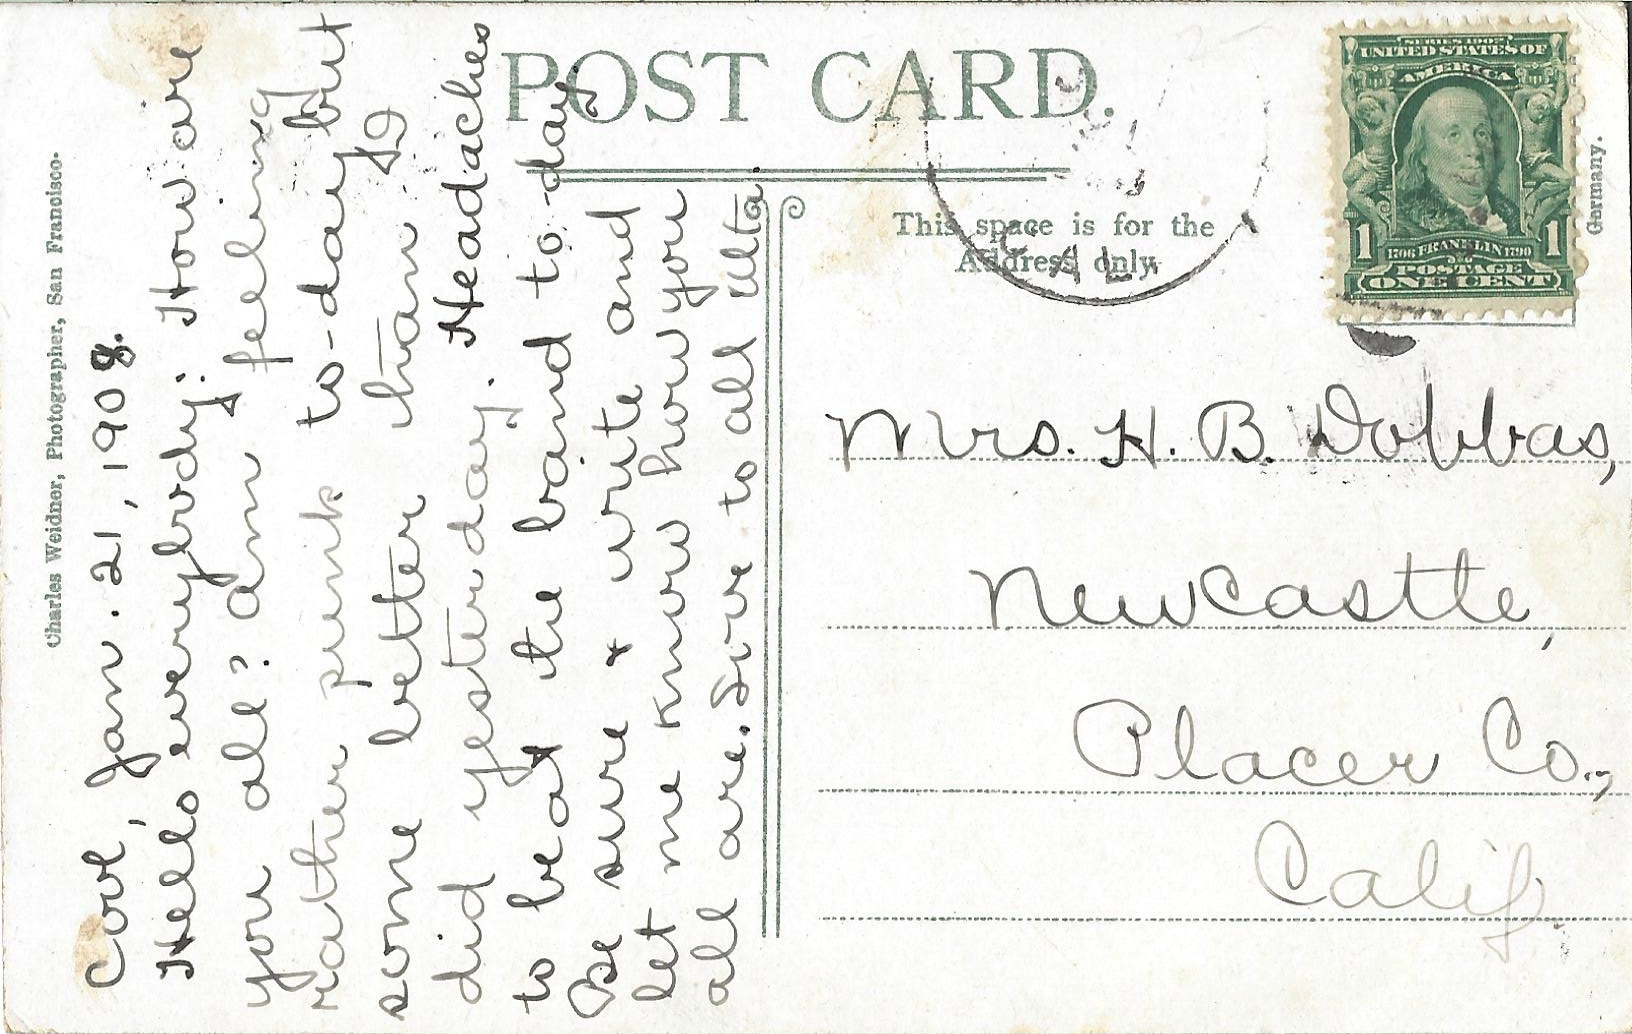 POST CARD.
This space is for the
Address only.
SERIES 1902
UNITED STATES OF
AMERICA
1 1
1706 FRANKLIN 1790
POSTAGE
ONE CENT
CAL.
Germany.
Charles Weidner, Photographer, San Francisco.
Cool, Jan. 21, 1908.
Hello everybody: How are
you all? Am feeling
rather punk to-day but
some better than I
did yesterday. Headaches
to beat the band to-day
Be sure & write and
let me know how you
all are. Love to all Ulta.
Mrs. H. B. Dobbas,
Newcastle,
Placer Co.,
Calif.